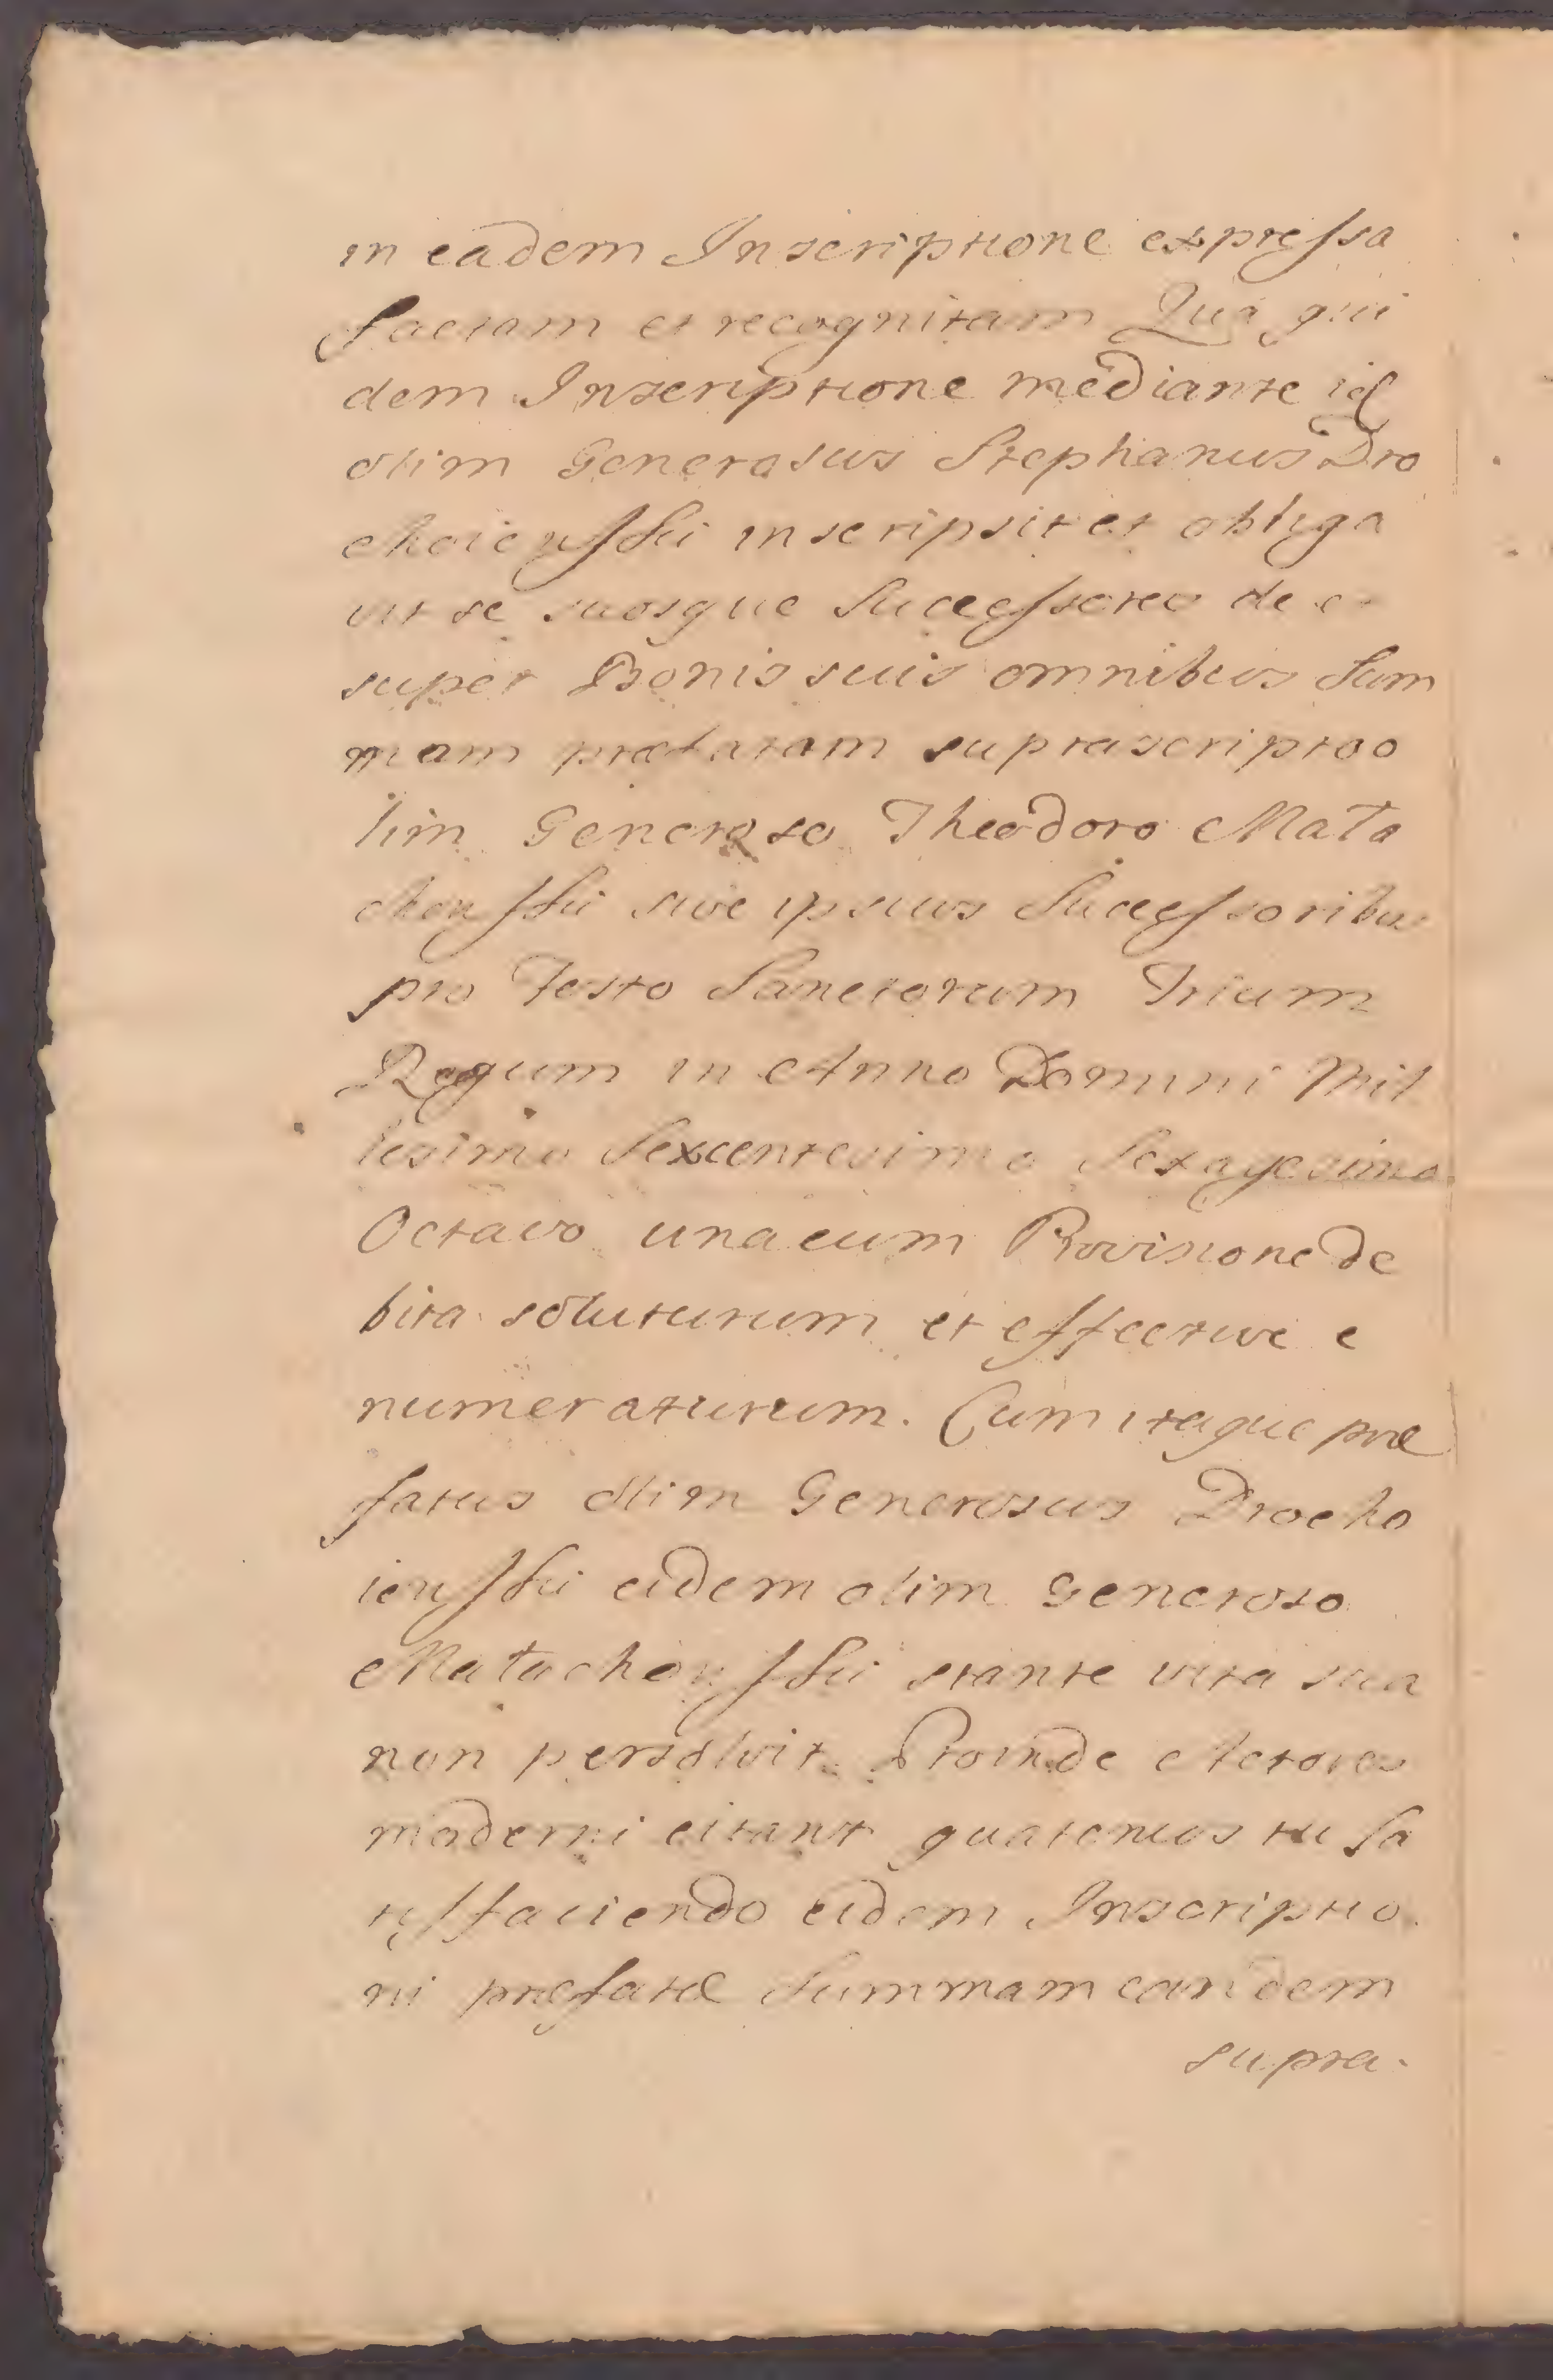 in eadem Inscriptione expressa
factam et recognitam Qua qui
dem Inscriptione mediante id
olim Generosus Stephanus Dro
choiewski inscripsit et obliga
vit se suosque Successores de et
super Bonis suis omnibus Sum
mam præfatam suprascripto o
lim Generoso Theodoro Mala
chowski sive ipsius Successoribus
pro Festo Sanctorum Trium
Regum in Anno Domini Mil
lesimo Sexcentesimo Sexagesimo
Octavo una cum Provisione de
bita soluturum et effective e
numeraturum. Cum itaque præ
fatus olim Generosus Drocho
iewski eidem olim Generoso
Malachowski stante vita sua
non persolvit Proinde Actores
moderni citant quatenus tu sa
tisfaciendo eidem Inscriptio
ni præfatæ Summam eandem
supra-